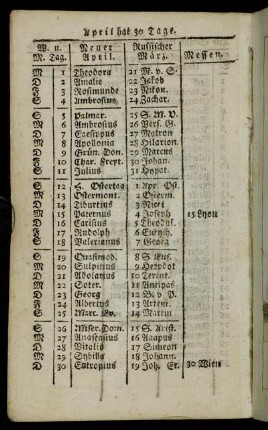 April hat 30 Tage.
W. u. Neuer Russischer
M. Tag. April. März. Messen.
M 1 Theodora 21 M. v. S.
D 2 Amalie 22 Jakob
F 3 Rosimunde 23 Nikon.
S 4 Ambrosius 24 Zachar.
S 5 Palmar. 25 S. M. V.
M 6 Ambrosius 26 Vers. G.
D 7 Caesipus 27 Matron
M 8 Apollonia 28 Hilarion
D 9 Grün. Don. 29 Marcus
F 10 Char. Freyt. 30 Johan.
S 11 Julius 31 Hypat.
S 12 H. Ostertag 1 Apr. Ost.
M 13 Ostermont. 2
D 14 Tiburtius 3 Nicet
M 15 Paternus 4 Joseph 15 Lyon
D 16 Carisius 5 Theodul.
F 17 Rudolph 6 Eutych.
S 18 Valerianus 7 Georg
S 19 Quasimod. 8
M 20 Sulpitius 9 Herodot
D 21 Adolarius 10 Terent.
M 22 Soter. 11 Antipas
D 23 Georg 12 B. v P.
F 24 Albertus 13 Artem.
S 25 Marc. Ev. 14 Martin
S 26 Miser. Dom. 15 S. Arist.
M 27 Anastasius 16 Agapus
D 28 Vitalis 17 Simeon
M 29 Sybilla 18 Johann.
D 30 Eutropius 19 Joh. Er. 30 Wien